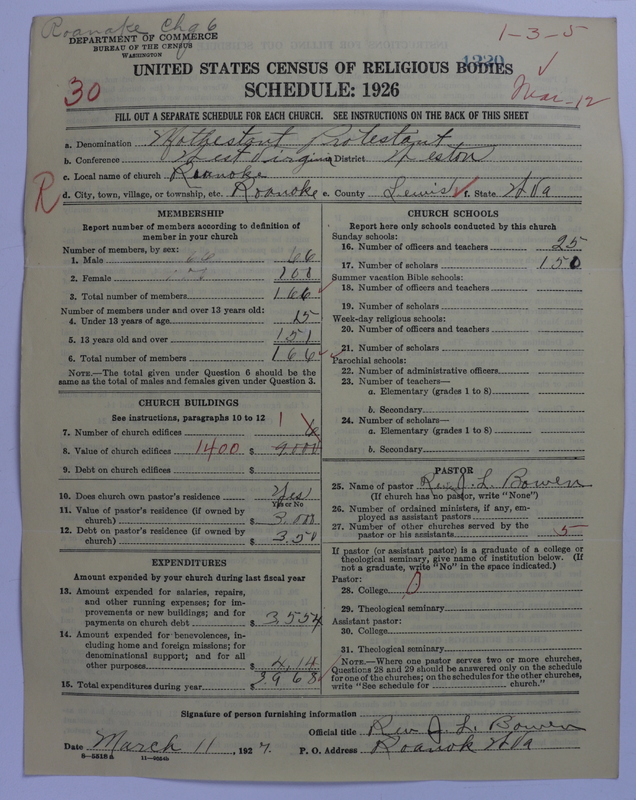 Roanoke Chg 6
DEPARTMENT OF COMMERCE
BUREAU OF THE CENSUS
WASHINGTON
1-3-5
1220
UNITED STATES CENSUS OF RELIGIOUS BODIES
SCHEDULE: 1926
30
Mar-12
FILL OUT A SEPARATE SCHEDULE FOR EACH CHURCH. SEE INSTRUCTIONS ON THE BACK OF THIS SHEET
a. Denomination Methestant Protestant
b. Conference West Virginia District Weston
c. Local name of church Roanoke
R
d. City, town, village, or township, etc. Roanoke e. County Lewis f. State W Va
MEMBERSHIP
Report number of members according to definition of
member in your church
Number of members, by sex:
1. Male 66
2. Female 100
3. Total number of members 166
Number of members under and over 13 years old:
4. Under 13 years of age 15
5. 13 years old and over 151
6. Total number of members 166
NOTE.—The total given under Question 6 should be the
same as the total of males and females given under Question 3.
CHURCH BUILDINGS
See instructions, paragraphs 10 to 12
7. Number of church edifices 1 6
8. Value of church edifices 1400 $ 9000
9. Debt on church edifices $
10. Does church own pastor's residence Yes
Yes or No
11. Value of pastor's residence (if owned by
church) $ 3,000
12. Debt on pastor's residence (if owned by
church) $ 350
EXPENDITURES
Amount expended by your church during last fiscal year
13. Amount expended for salaries, repairs,
and other running expenses; for im-
provements or new buildings; and for
payments on church debt $ 3,554
14. Amount expended for benevolences, in-
cluding home and foreign missions; for
denominational support; and for all
other purposes $ 4,14
15. Total expenditures during year $ 3968
CHURCH SCHOOLS
Report here only schools conducted by this church
Sunday schools:
16. Number of officers and teachers 25
17. Number of scholars 150
Summer vacation Bible schools:
18. Number of officers and teachers
19. Number of scholars
Week-day religious schools:
20. Number of officers and teachers
21. Number of scholars
Parochial schools:
22. Number of administrative officers
23. Number of teachers—
a. Elementary (grades 1 to 8)
b. Secondary
24. Number of scholars—
a. Elementary (grades 1 to 8)
b. Secondary
PASTOR
25. Name of pastor Rev J. L. Bowen
(If church has no pastor, write "None")
26. Number of ordained ministers, if any, em-
ployed as assistant pastors
27. Number of other churches served by the
pastor or his assistants 5
If pastor (or assistant pastor) is a graduate of a college or
theological seminary, give name of institution below. (If
not a graduate, write "No" in the space indicated.)
Pastor:
28. College 0
29. Theological seminary
Assistant pastor:
30. College
31. Theological seminary
NOTE.—Where one pastor serves two or more churches,
Questions 28 and 29 should be answered only on the schedule
for one of the churches; on the schedules for the other churches,
write "See schedule for church."
Signature of person furnishing information
Official title Rev J. L. Bowen
Date March 11, 1927. P. O. Address Roanok W Va
8-5518 A